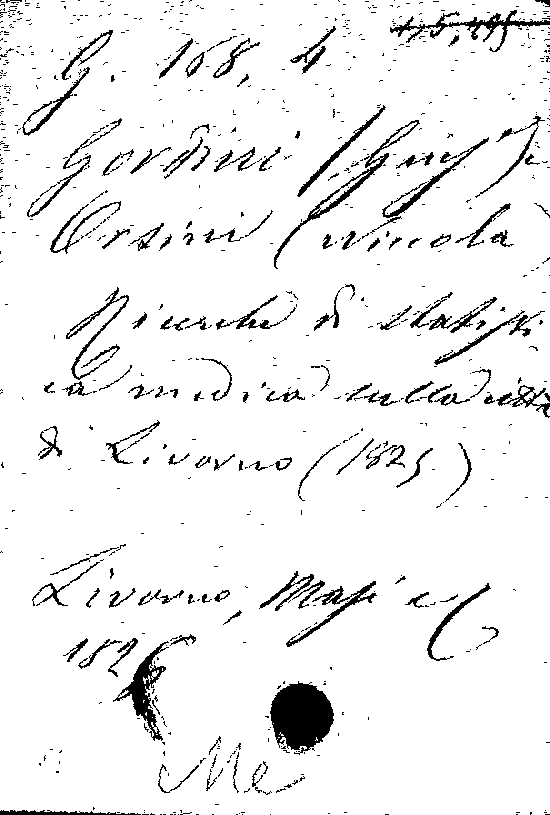 G. 168, 4
Gordini (Giusᵉ) e
Orsini (Nicola
Ricerche di statisti
ca medica sulla città
di Livorno (1825)
Livorno, Masi e C
1826
Me